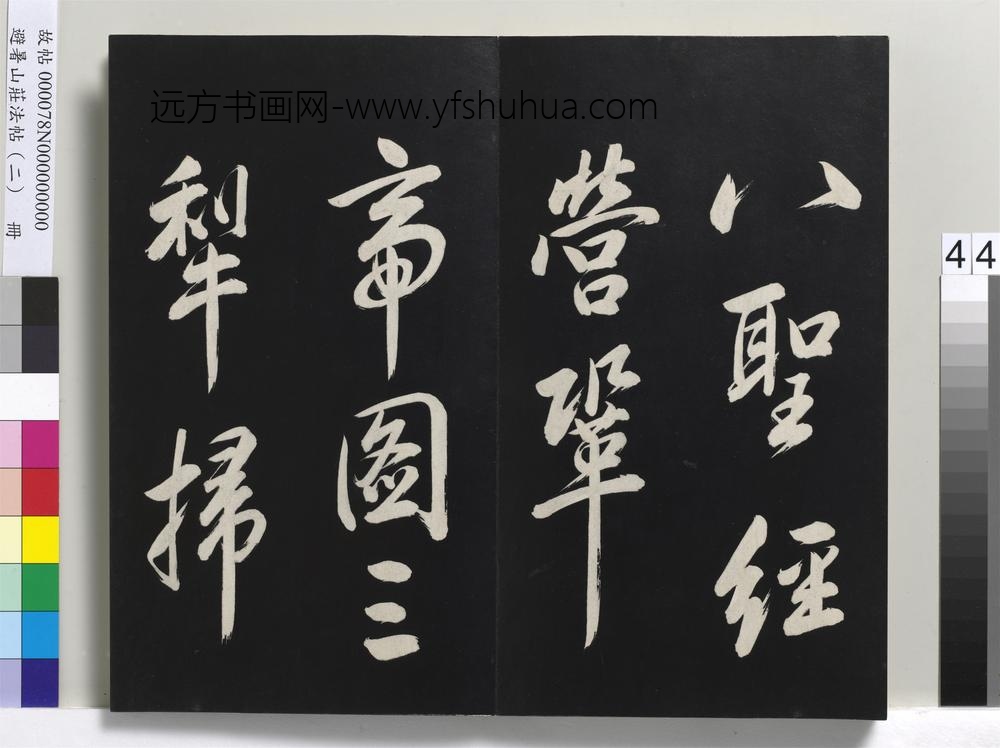 八聖經
營鞏
帝圖三
犂掃
远方书画网-www.yfshuhua.com
故帖 000078N000000000
避暑山莊法帖（二） 冊
44